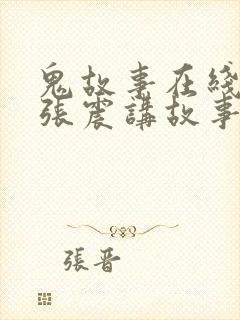 鬼故事在綫
張震講故事
張晋